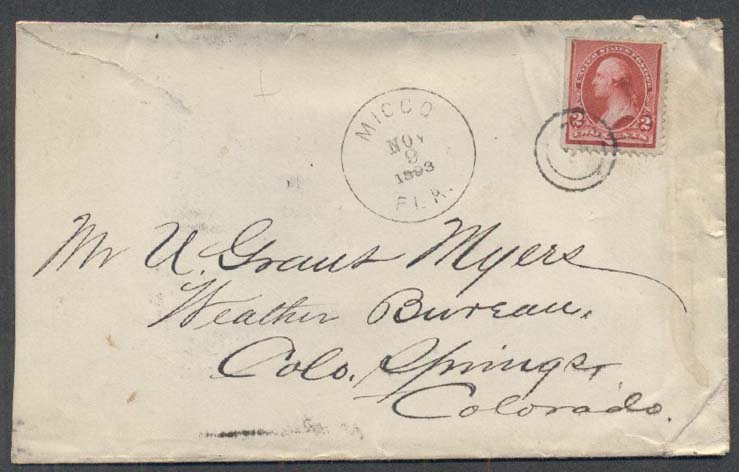 UNITED STATES POSTAGE
2 2
TWO CENTS
MICCO
NOV
9
1893
FLA.
Mr U. Grant Myers
Weather Bureau.
Colo. Springs,
Colorado.